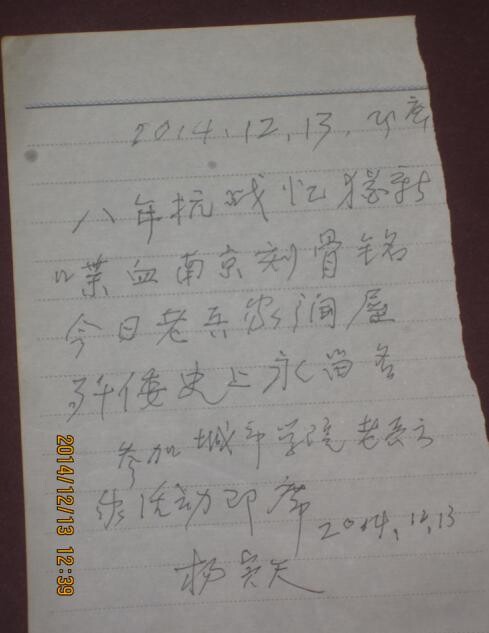 2014.12.13.即席
八年抗战忆犹新
喋血南京刻骨铭
今日老兵家润屋
歼倭史上永留名
参加城市学院老兵之
家活动即席 2014.12.13
杨
天
2014/12/13 12:39